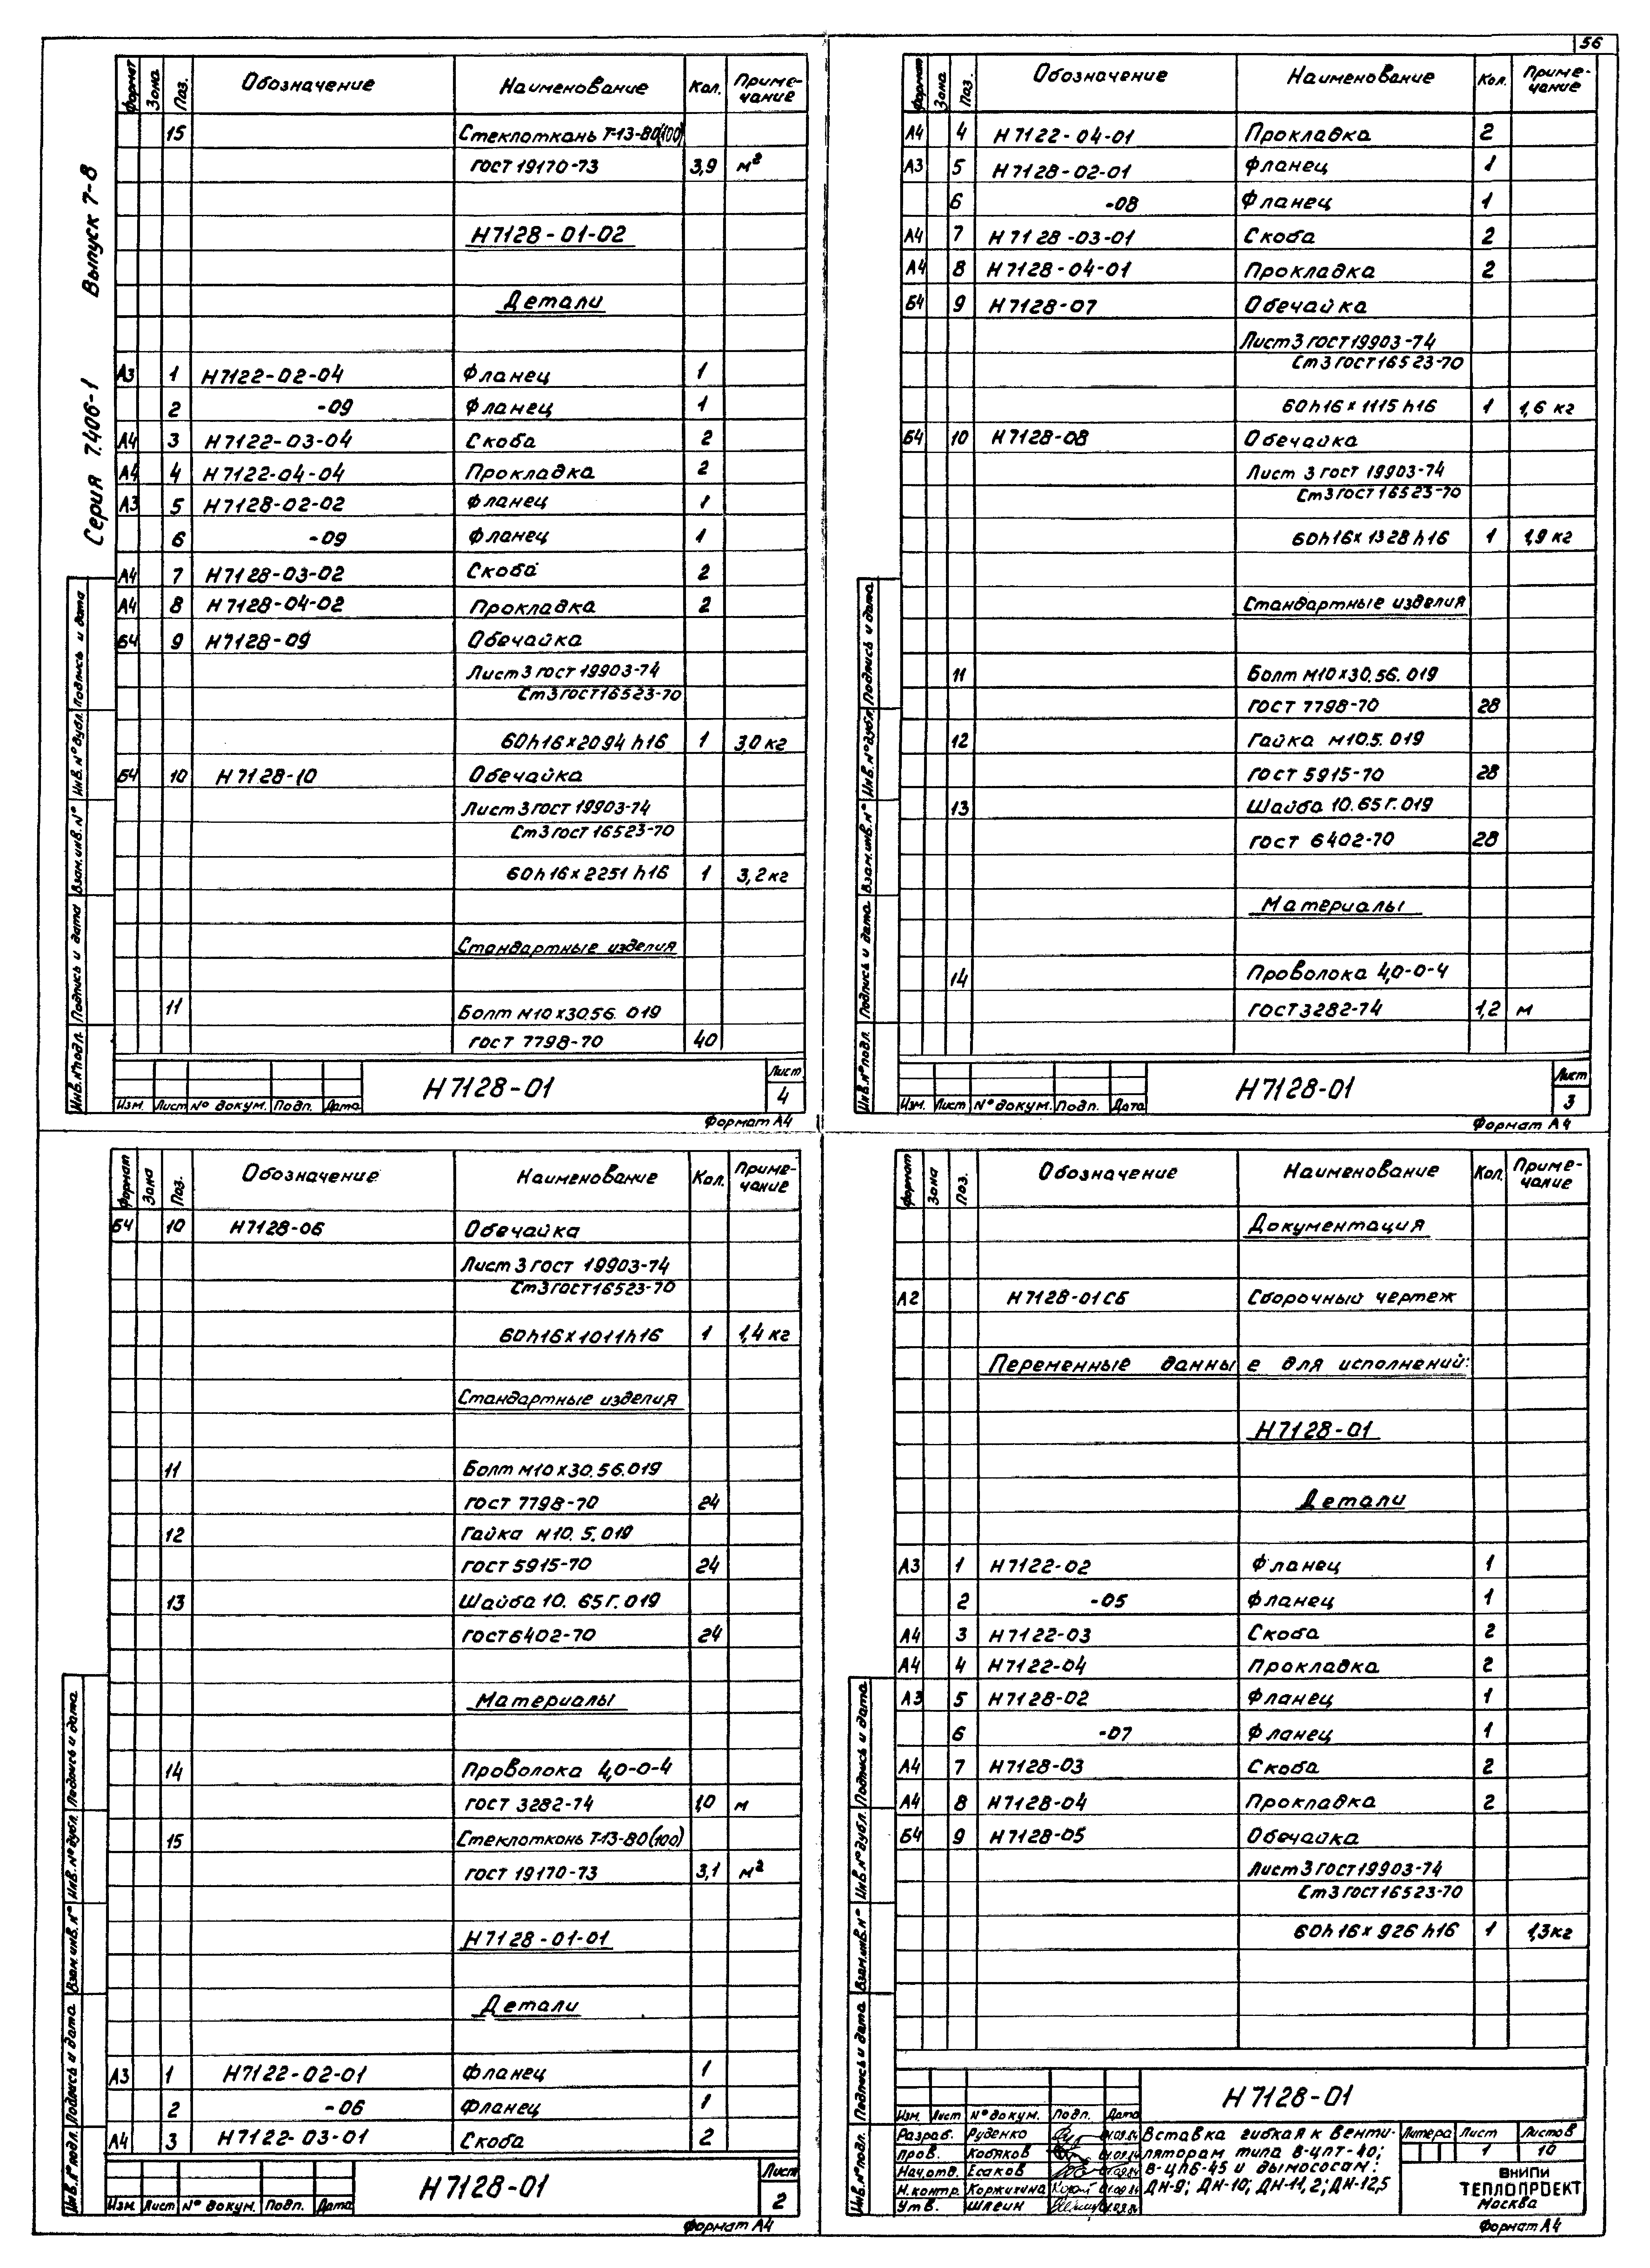 56
Серия 7.406-1 Выпуск 7-8
Формат Зона Поз. Обозначение Наименование Кол. Приме-чание
15 Стеклоткань Т-13-80(100)
ГОСТ 19170-73 3,9 м²
Н7128-01-02
Детали
А3 1 Н7122-02-04 Фланец 1
2 -09 Фланец 1
А4 3 Н7122-03-04 Скоба 2
А4 4 Н7122-04-04 Прокладка 2
А3 5 Н7128-02-02 Фланец 1
6 -09 Фланец 1
А4 7 Н7128-03-02 Скоба 2
А4 8 Н7128-04-02 Прокладка 2
Б4 9 Н7128-09 Обечайка
Лист 3 ГОСТ 19903-74
Ст3 ГОСТ 16523-70
60h16×2094 h16 1 3,0 кг
Б4 10 Н7128-10 Обечайка
Лист 3 ГОСТ 19903-74
Ст3 ГОСТ 16523-70
60h16×2251 h16 1 3,2 кг
Стандартные изделия
11 Болт М10×30.56.019
ГОСТ 7798-70 40
Инв.№подл. Подпись и дата Взам.инв.№ Инв.№дубл. Подпись и дата
Изм. Лист № докум. Подп. Дата
Н7128-01
Лист 4
Формат А4
Формат Зона Поз. Обозначение Наименование Кол. Приме-чание
А4 4 Н7122-04-01 Прокладка 2
А3 5 Н7128-02-01 Фланец 1
6 -08 Фланец 1
А4 7 Н7128-03-01 Скоба 2
А4 8 Н7128-04-01 Прокладка 2
Б4 9 Н7128-07 Обечайка
Лист 3 ГОСТ 19903-74
Ст3 ГОСТ 16523-70
60h16×1115 h16 1 1,6 кг
Б4 10 Н7128-08 Обечайка
Лист 3 ГОСТ 19903-74
Ст3 ГОСТ 16523-70
60h16×1328 h16 1 1,9 кг
Стандартные изделия
11 Болт М10×30.56.019
ГОСТ 7798-70 28
12 Гайка М10.5.019
ГОСТ 5915-70 28
13 Шайба 10.65Г.019
ГОСТ 6402-70 28
Материалы
14 Проволока 4,0-0-4
ГОСТ 3282-74 1,2 м
Инв.№подл. Подпись и дата Взам.инв.№ Инв.№дубл. Подпись и дата
Изм. Лист № докум. Подп. Дата
Н7128-01
Лист 3
Формат А4
Формат Зона Поз. Обозначение Наименование Кол. Приме-чание
Б4 10 Н7128-06 Обечайка
Лист 3 ГОСТ 19903-74
Ст3 ГОСТ 16523-70
60h16×1011 h16 1 1,4 кг
Стандартные изделия
11 Болт М10×30.56.019
ГОСТ 7798-70 24
12 Гайка М10.5.019
ГОСТ 5915-70 24
13 Шайба 10.65Г.019
ГОСТ 6402-70 24
Материалы
14 Проволока 4,0-0-4
ГОСТ 3282-74 1,0 м
15 Стеклоткань Т-13-80(100)
ГОСТ 19170-73 3,1 м²
Н7128-01-01
Детали
А3 1 Н7122-02-01 Фланец 1
2 -06 Фланец 1
А4 3 Н7122-03-01 Скоба 2
Инв.№подл. Подпись и дата Взам.инв.№ Инв.№дубл. Подпись и дата
Изм. Лист № докум. Подп. Дата
Н7128-01
Лист 2
Формат А4
Формат Зона Поз. Обозначение Наименование Кол. Приме-чание
Документация
А2 Н7128-01СБ Сборочный чертеж
Переменные данные для исполнений:
Н7128-01
Детали
А3 1 Н7122-02 Фланец 1
2 -05 Фланец 1
А4 3 Н7122-03 Скоба 2
А4 4 Н7122-04 Прокладка 2
А3 5 Н7128-02 Фланец 1
6 -07 Фланец 1
А4 7 Н7128-03 Скоба 2
А4 8 Н7128-04 Прокладка 2
Б4 9 Н7128-05 Обечайка
Лист 3 ГОСТ 19903-74
Ст3 ГОСТ 16523-70
60h16×926 h16 1 1,3 кг
Инв.№подл. Подпись и дата Взам.инв.№ Инв.№дубл. Подпись и дата
Н7128-01
Изм. Лист № докум. Подп. Дата
Разраб. Руденко
Пров. Кобяков
Нач.отд. Есаков
Н.контр. Коржигина
Утв. Шлеин
Вставка гибкая к венти-
ляторам типа В-ЦПТ-40;
В-ЦП6-45 и дымососам:
ДН-9; ДН-10; ДН-11,2; ДН-12,5
Литера Лист Листов
1 10
ВНИПИ
ТЕПЛОПРОЕКТ
Москва
Формат А4